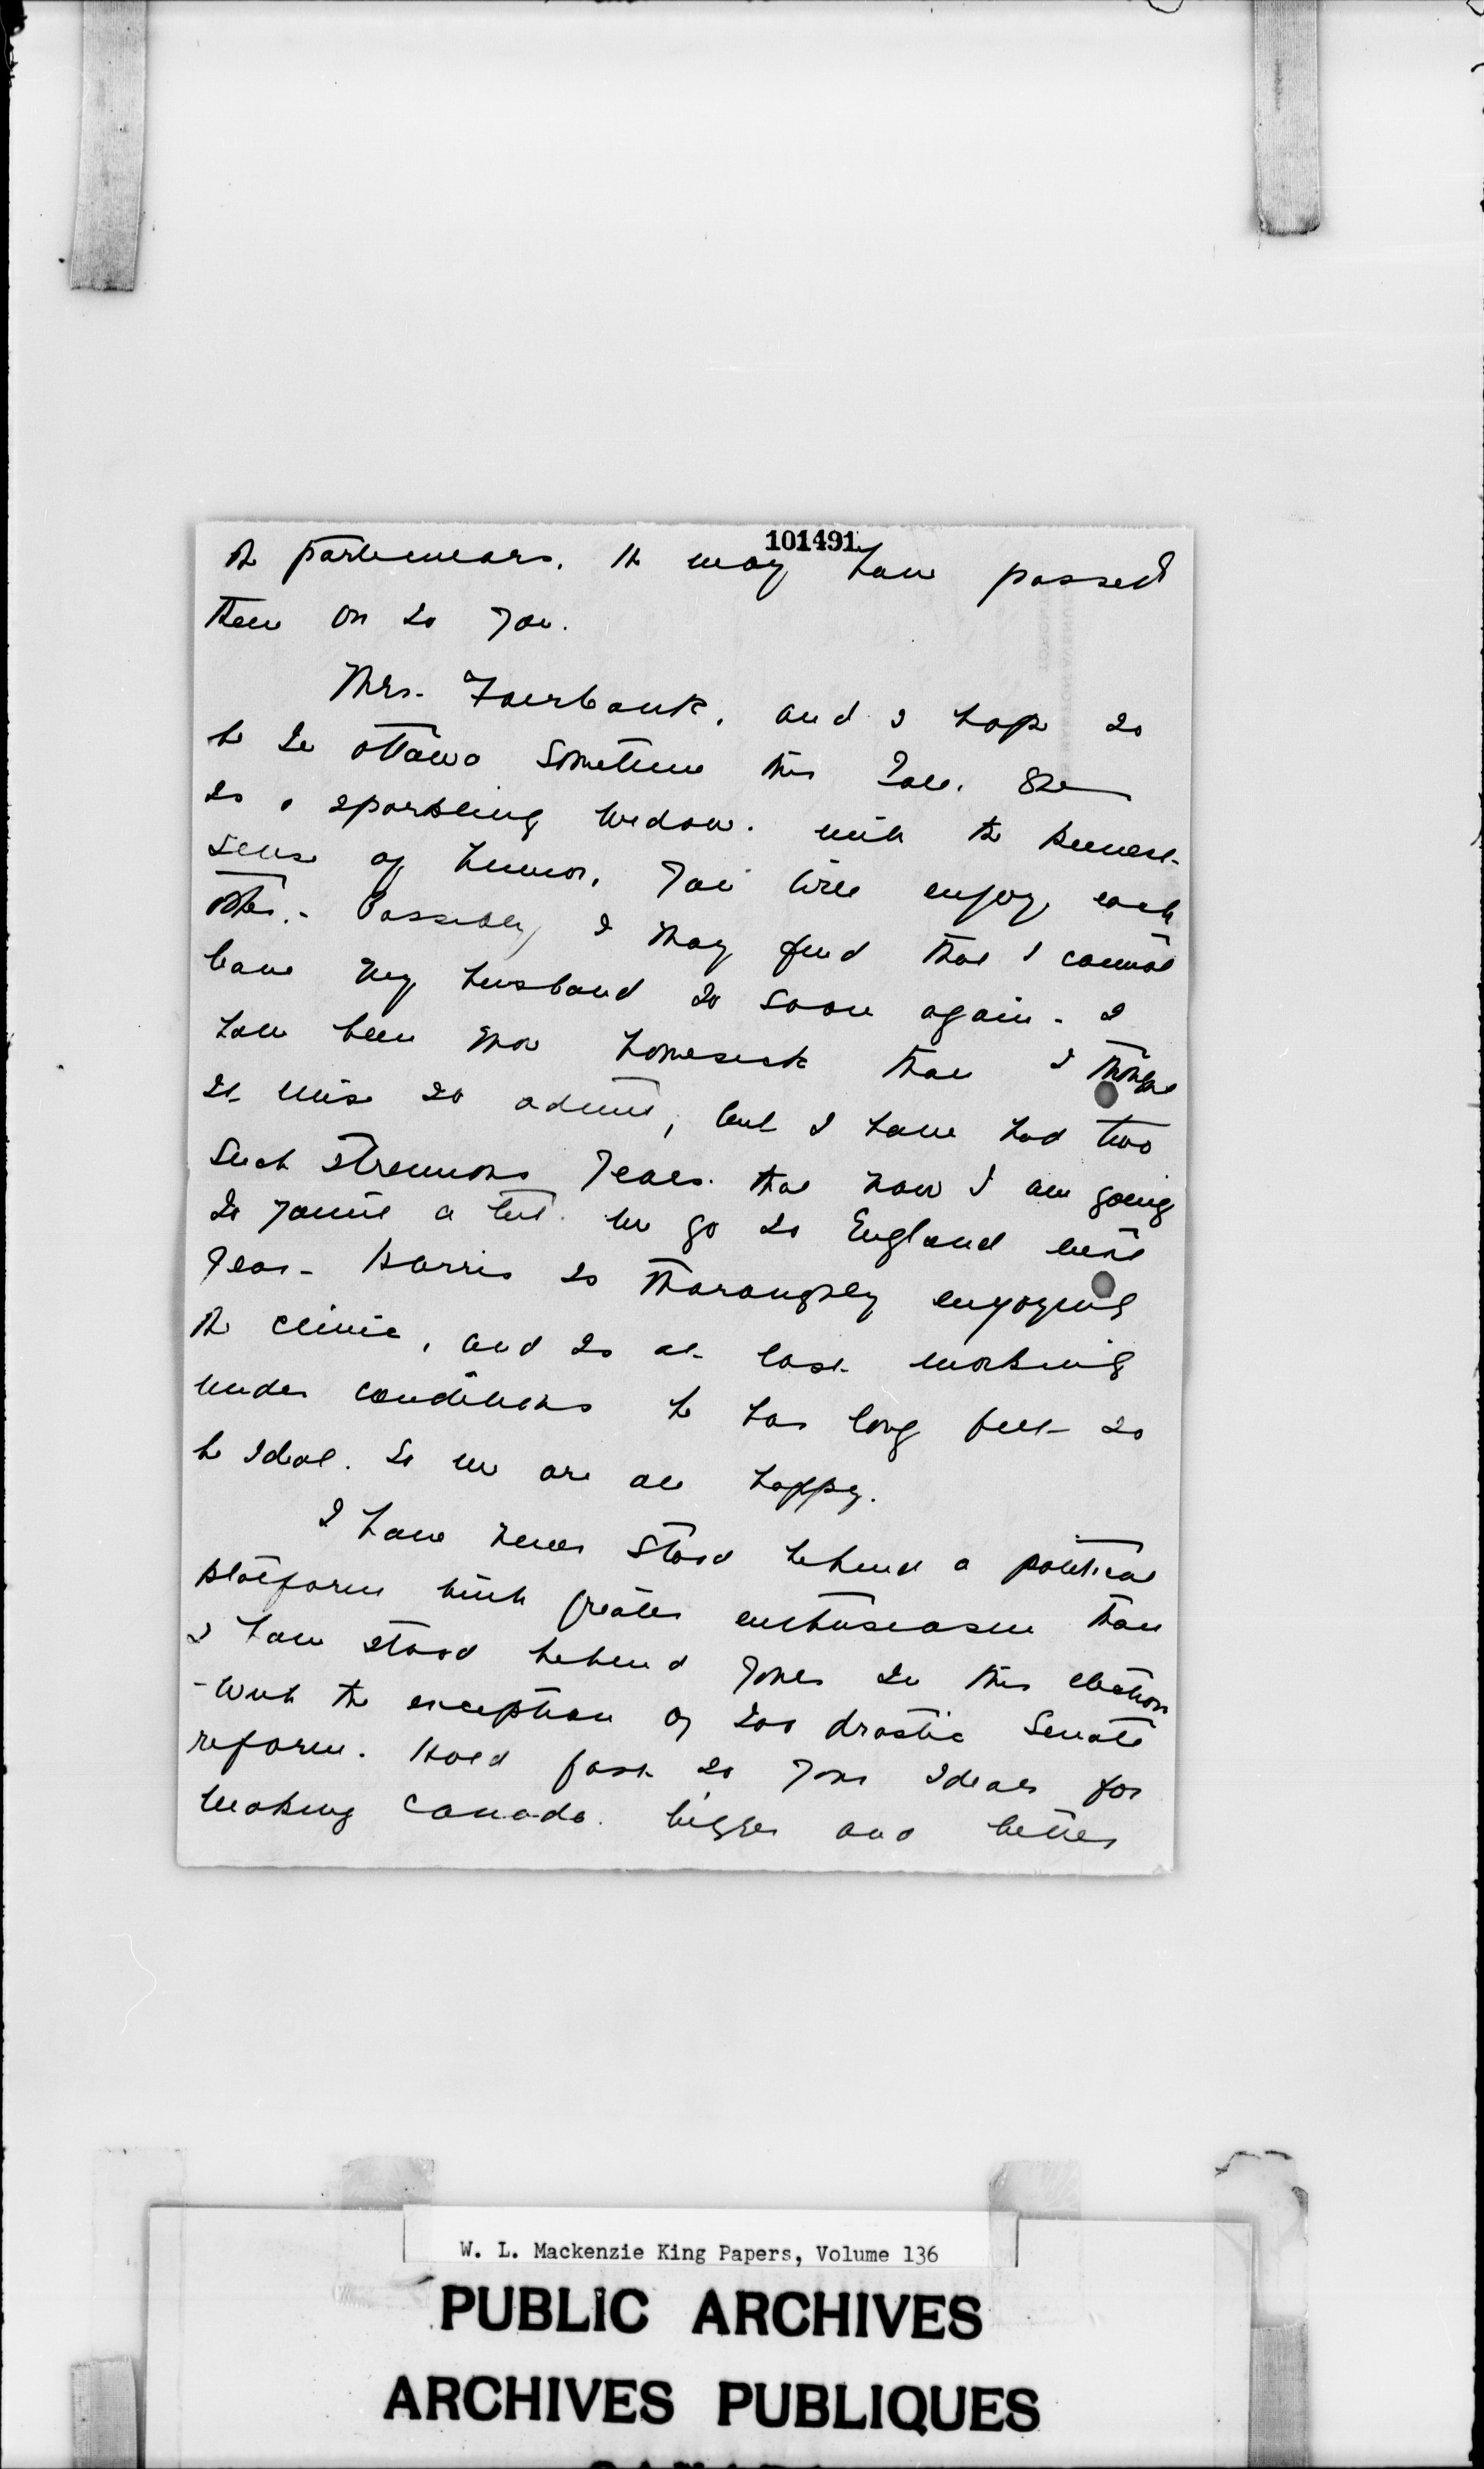 101491
the particulars. He may have passed
them on to you.
Mrs. Fairbank, and I hope to
be in Ottawa sometime this Fall. She
is a sparkling widow. with the keenest
sense of humor. You will enjoy each
other. - Possibly I may find that I cannot
leave my husband so soon again - I
have been more homesick than I thought
it wise to admit, but I have had two
such strenuous years. that now I am going
to a bit. We go to England next
year - Harris is thoroughly enjoying
the clinic, and is at last working
under conditions he has long felt to
be ideal. So we are all happy.
I have never stood behind a political
platform with greater enthusiasm than
I have stood behind yours in this election
- with the exception of too drastic Senate
reform. Hold fast to your ideals for
making Canada bigger and better
W. L. Mackenzie King Papers, Volume 136
PUBLIC ARCHIVES
ARCHIVES PUBLIQUES